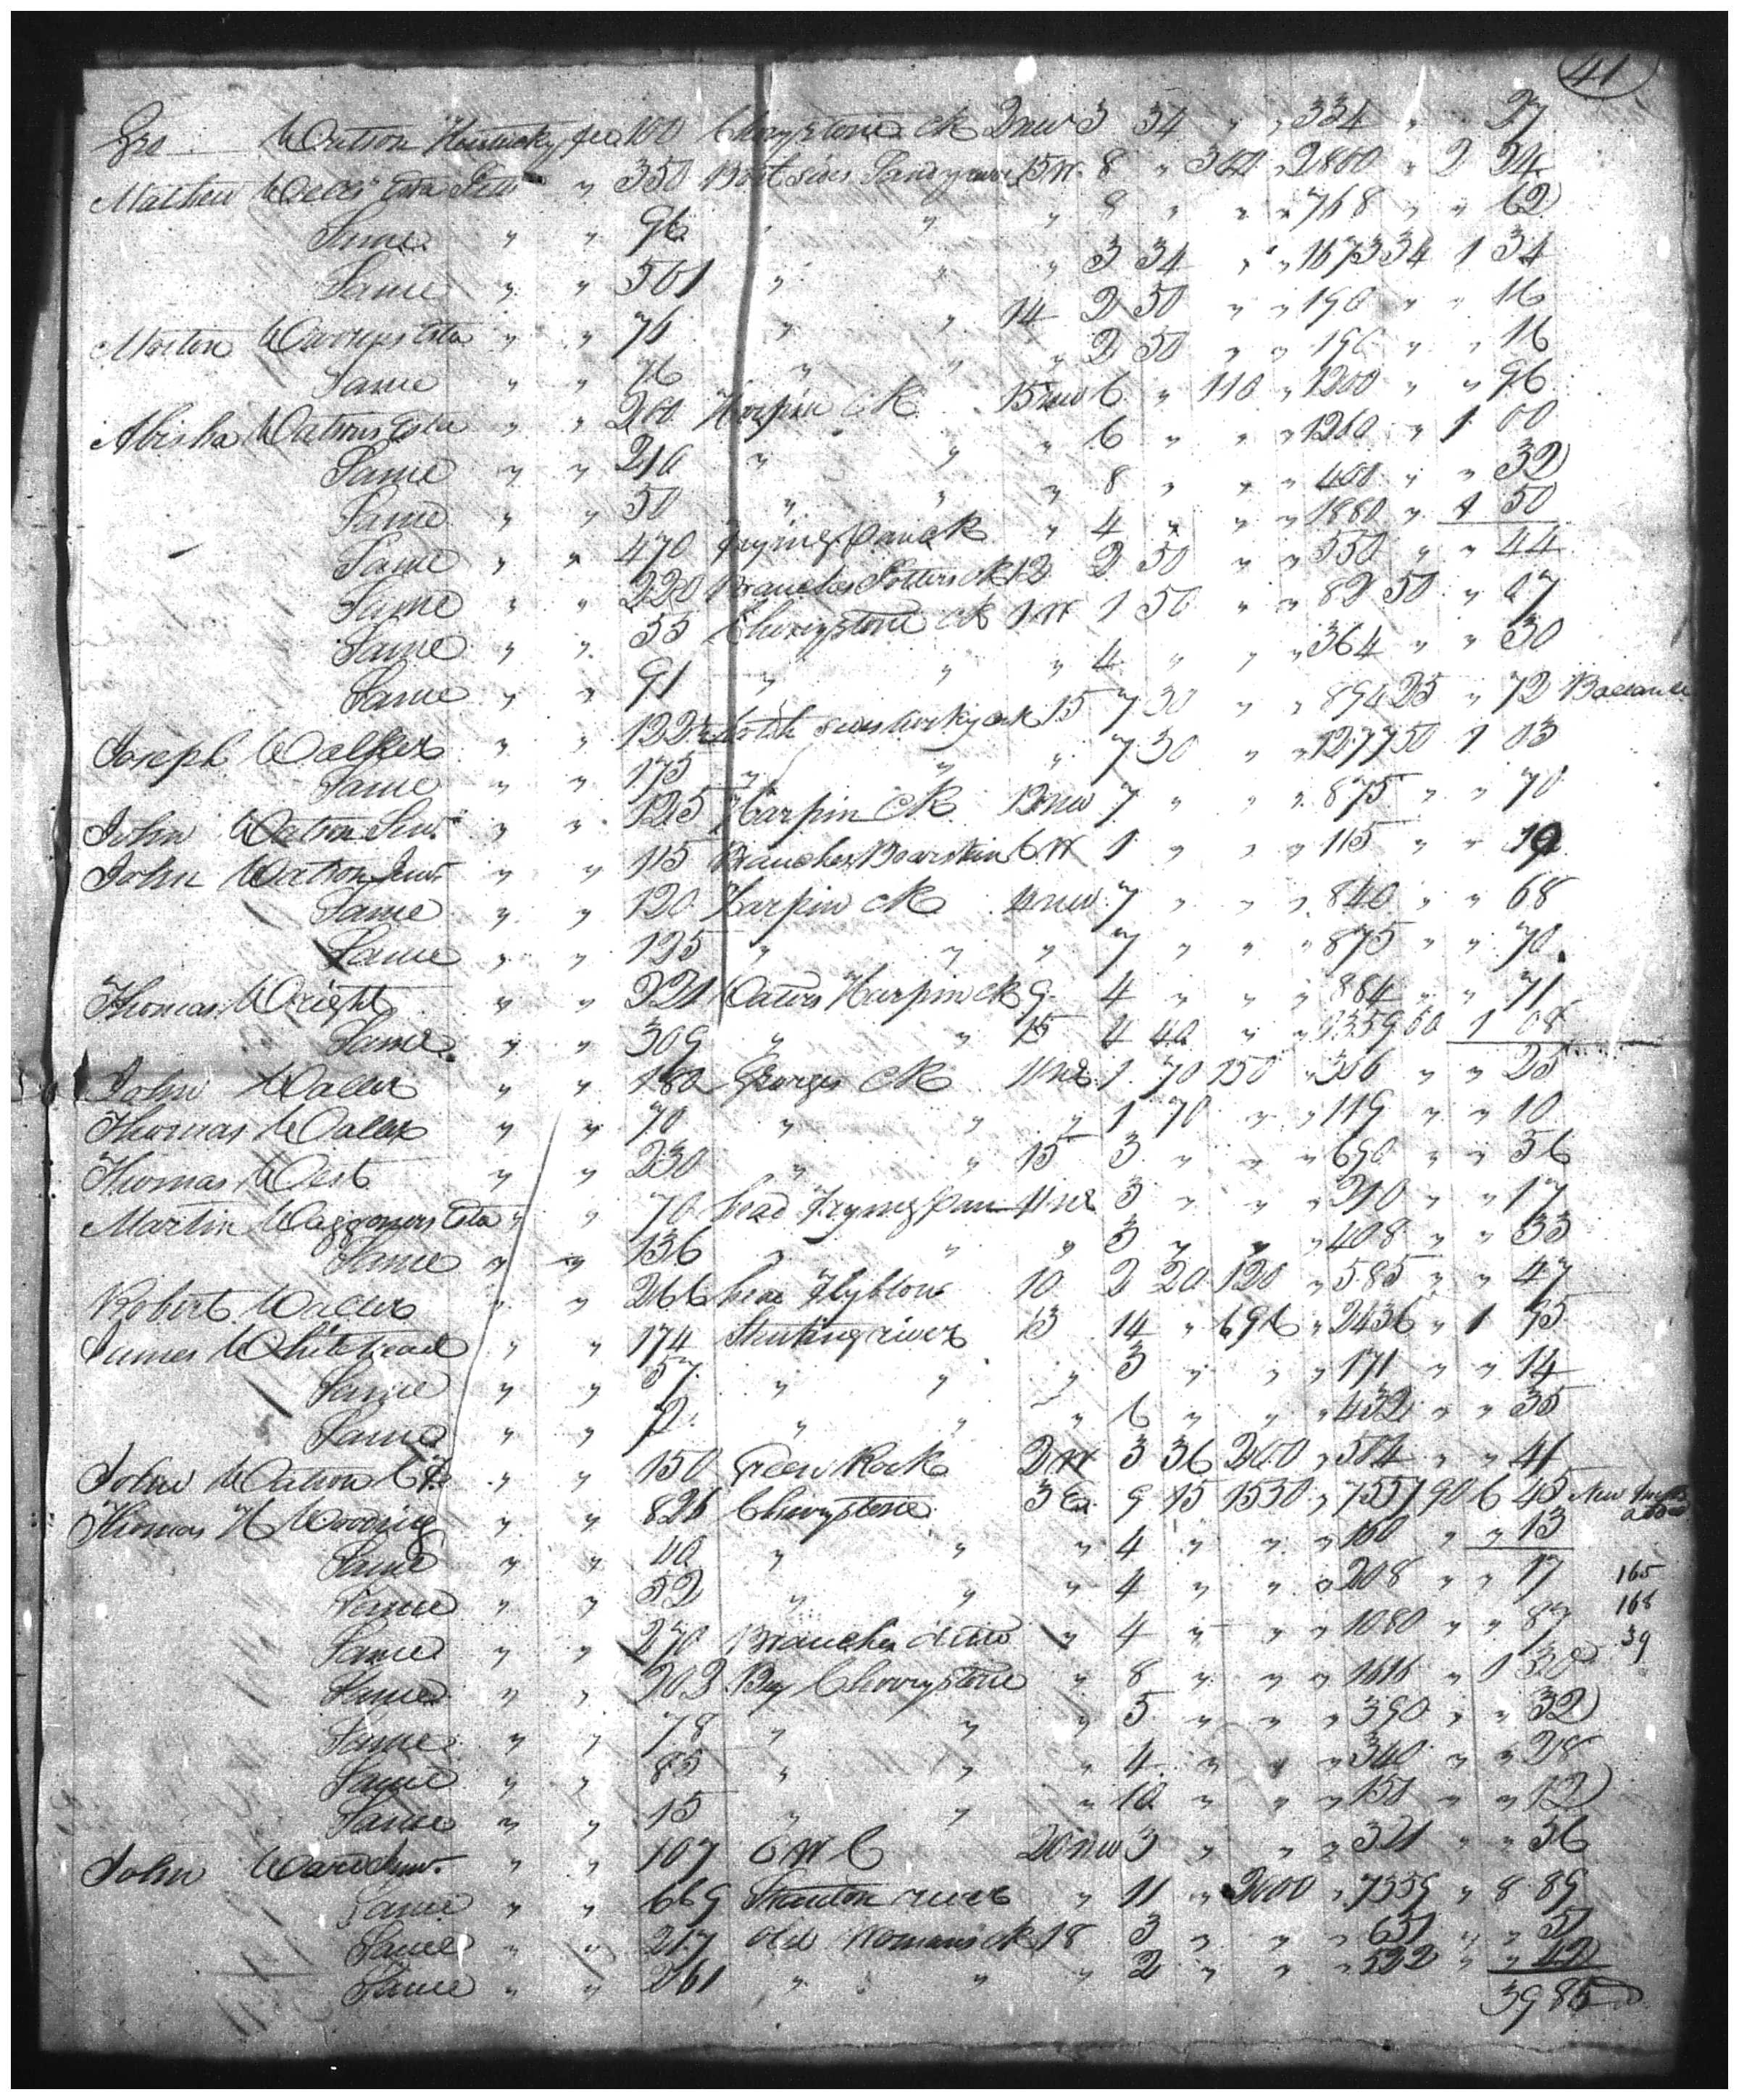 41
Geo Watson Kentucky fee 100 Cherrystone Ck 2 nw 3 34 " " 334 " " 27
Mathew Wells Esta Pitts " 350 Both sides Sandy river 15 W 8 " 340 " 2800 " 2 24
Same " " 96 " " " 8 " " " 768 " " 62
Same " " 501 " " " 3 34 " " 1673 34 1 34
Morten Warrens Esta " " 76 " " 14 2 50 " " 190 " " 16
Same " " 76 " " " 2 50 " " 190 " " 16
Abisha Watsons Esta " " 200 Harpin Ck 15 nw 6 " 110 " 1200 " " 96
Same " " 210 " " " 6 " " " 1260 " 1 00
Same " " 50 " " " 8 " " " 400 " " 32
Same " " 470 Frying pan ck " 4 " " " 1880 " 1 50
Same " " 220 Branches Potters ck 12 2 50 " " 550 " " 44
Same " " 55 Cherrystone ck 1 W 1 50 " " 82 50 " 07
Same " " 91 " " " 4 " " " 364 " " 30
Joseph Walker " " 122½ both sides turkycock 15 7 30 " " 894 25 " 72 Ballance
Same " " 175 " " " 7 30 " " 1277 50 1 03
John Watson Senr " " 125 Harpin Ck 12 nw 7 " " " 875 " " 70
John Watson Junr " " 115 Branches Bearskin 6 W 1 " " " 115 " " 19
Same " " 120 Harpin Ck 11 nw 7 " " " 840 " " 68
Same " " 125 " " " 7 " " " 875 " " 70
Thomas Wright " " 221 Waters Harpin ck 9 4 " " " 884 " " 71
Same " " 309 " " 15 4 40 " " 1359 60 1 08
John Waller " " 180 Georges Ck 11 ne 1 70 150 " 306 " " 25
Thomas Waller " " 70 " " " 1 70 " " 119 " " 10
Thomas West " " 230 " " 15 3 " " " 690 " " 56
Martin Waggoners Esta " " 70 head Frying Pan 11 ne 3 " " " 210 " " 17
Same " " 136 " " " 3 " " " 408 " " 33
Robert Waller " " 266 head Flyblow 10 2 20 120 " 585 " " 47
James Whitehead " " 174 Stinking river 13 14 " 696 " 2436 " 1 95
Same " " 57 " " " 3 " " " 171 " " 14
Same " " 72 " " " 6 " " " 432 " " 35
John Watson " " 150 Green Rock 2 W 3 36 200 " 504 " " 41
Thomas H Wooding " " 826 Cherrystone 3 Ea 9 15 1530 " 7557 90 6 45 New
Same " " 40 " " " 4 " " " 160 " " 13
Same " " 52 " " " 4 " " " 208 " " 17 165
Same " " 270 Branches ditto " 4 " " " 1080 " " 87 168
Same " " 202 Big Cherrystone " 8 " " " 1616 " 1 30 39
Same " " 78 " " " 5 " " " 390 " " 32
Same " " 85 " " " 4 " " " 340 " " 28
Same " " 15 " " " 10 " " " 150 " " 12
John Ward Junr " " 107 20 nw 3 " " " 321 " " 36
Same " " 669 Staunton river " 11 " 2000 " 7359 " 8 89
Same " " 217 Old Womans ck 18 3 " " " 651 " " 51
Same " " 261 " " " 2 " " " 522 " " 42
39 86